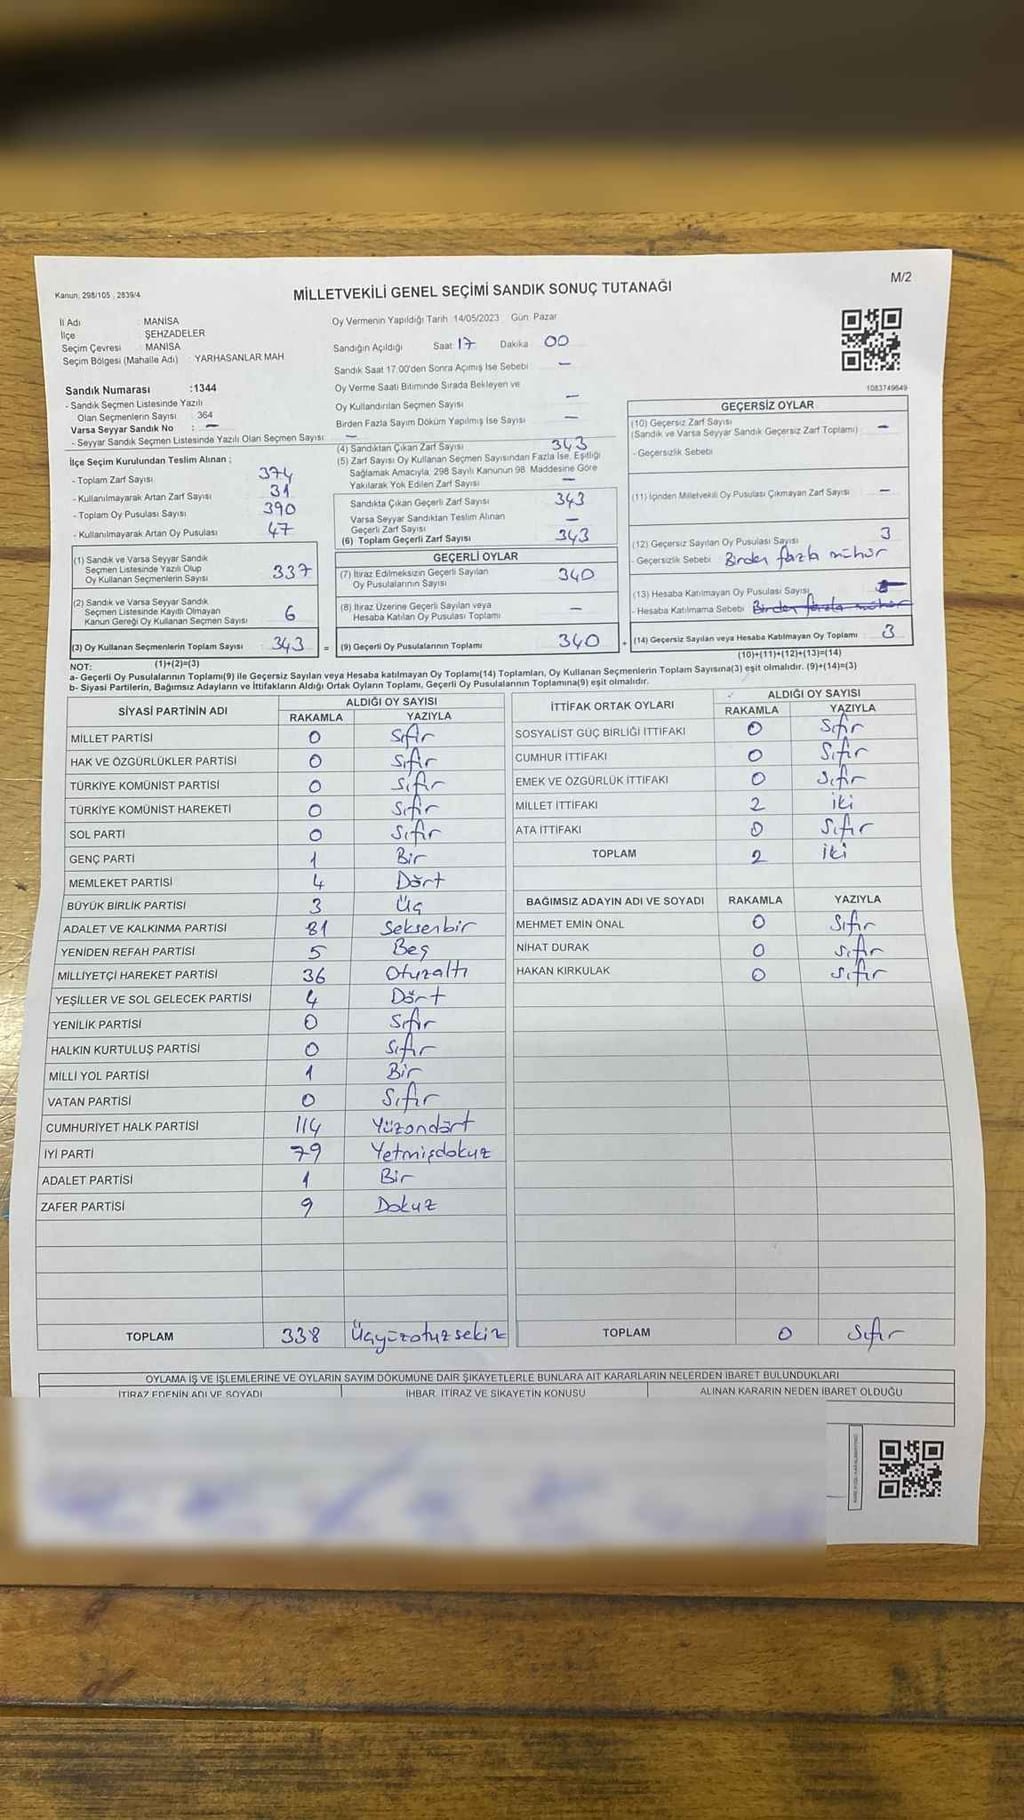 M/2
Kanun: 298/105 , 2839/4
MİLLETVEKİLİ GENEL SEÇİMİ SANDIK SONUÇ TUTANAĞI
İl Adı MANİSA
İlçe ŞEHZADELER
Seçim Çevresi MANİSA
Seçim Bölgesi (Mahalle Adı) YARHASANLAR MAH
Oy Vermenin Yapıldığı Tarih 14/05/2023 Gün: Pazar
Sandığın Açıldığı Saat 17 Dakika 00
Sandık Saat 17.00'den Sonra Açımış İse Sebebi –
Oy Verme Saati Bitiminde Sırada Bekleyen ve
Oy Kullandırılan Seçmen Sayısı –
Birden Fazla Sayım Döküm Yapılmış İse Sayısı –
1083749649
Sandık Numarası :1344
- Sandık Seçmen Listesinde Yazılı
Olan Seçmenlerin Sayısı : 364
Varsa Seyyar Sandık No : –
- Seyyar Sandık Seçmen Listesinde Yazılı Olan Seçmen Sayısı : –
İlçe Seçim Kurulundan Teslim Alınan ;
- Toplam Zarf Sayısı 374
- Kullanılmayarak Artan Zarf Sayısı 31
- Toplam Oy Pusulası Sayısı 390
- Kullanılmayarak Artan Oy Pusulası 47
(1) Sandık ve Varsa Seyyar Sandık
Seçmen Listesinde Yazılı Olup
Oy Kullanan Seçmenlerin Sayısı 337
(2) Sandık ve Varsa Seyyar Sandık
Seçmen Listesinde Kayıtlı Olmayan
Kanun Gereği Oy Kullanan Seçmen Sayısı 6
(3) Oy Kullanan Seçmenlerin Toplam Sayısı 343 =
(1)+(2)=(3)
(4) Sandıktan Çıkan Zarf Sayısı 343
(5) Zarf Sayısı Oy Kullanan Seçmen Sayısından Fazla İse, Eşitliği
Sağlamak Amacıyla, 298 Sayılı Kanunun 98. Maddesine Göre
Yakılarak Yok Edilen Zarf Sayısı –
Sandıkta Çıkan Geçerli Zarf Sayısı 343
Varsa Seyyar Sandıktan Teslim Alınan
Geçerli Zarf Sayısı –
(6) Toplam Geçerli Zarf Sayısı 343
GEÇERLİ OYLAR
(7) İtiraz Edilmeksizin Geçerli Sayılan
Oy Pusulalarının Sayısı 340
(8) İtiraz Üzerine Geçerli Sayılan veya
Hesaba Katılan Oy Pusulası Toplamı –
(9) Geçerli Oy Pusulalarının Toplamı 340 +
GEÇERSİZ OYLAR
(10) Geçersiz Zarf Sayısı
(Sandık ve Varsa Seyyar Sandık Geçersiz Zarf Toplamı) –
- Geçersizlik Sebebi
(11) İçinden Milletvekili Oy Pusulası Çıkmayan Zarf Sayısı –
(12) Geçersiz Sayılan Oy Pusulası Sayısı 3
- Geçersizlik Sebebi Birden fazla mühür
(13) Hesaba Katılmayan Oy Pusulası Sayısı
- Hesaba Katılmama Sebebi Birden fazla mühür
(14) Geçersiz Sayılan veya Hesaba Katılmayan Oy Toplamı 3
(10)+(11)+(12)+(13)=(14)
NOT:
a- Geçerli Oy Pusulalarının Toplamı(9) ile Geçersiz Sayılan veya Hesaba katılmayan Oy Toplamı(14) Toplamları, Oy Kullanan Seçmenlerin Toplam Sayısına(3) eşit olmalıdır. (9)+(14)=(3)
b- Siyasi Partilerin, Bağımsız Adayların ve İttifakların Aldığı Ortak Oyların Toplamı, Geçerli Oy Pusulalarının Toplamına(9) eşit olmalıdır.
SİYASİ PARTİNİN ADI ALDIĞI OY SAYISI
RAKAMLA YAZIYLA
MİLLET PARTİSİ 0 Sıfır
HAK VE ÖZGÜRLÜKLER PARTİSİ 0 Sıfır
TÜRKİYE KOMÜNİST PARTİSİ 0 Sıfır
TÜRKİYE KOMÜNİST HAREKETİ 0 Sıfır
SOL PARTİ 0 Sıfır
GENÇ PARTİ 1 Bir
MEMLEKET PARTİSİ 4 Dört
BÜYÜK BİRLİK PARTİSİ 3 Üç
ADALET VE KALKINMA PARTİSİ 81 Seksenbir
YENİDEN REFAH PARTİSİ 5 Beş
MİLLİYETÇİ HAREKET PARTİSİ 36 Otuzaltı
YEŞİLLER VE SOL GELECEK PARTİSİ 4 Dört
YENİLİK PARTİSİ 0 Sıfır
HALKIN KURTULUŞ PARTİSİ 0 Sıfır
MİLLİ YOL PARTİSİ 1 Bir
VATAN PARTİSİ 0 Sıfır
CUMHURİYET HALK PARTİSİ 114 Yüzondört
İYİ PARTİ 79 Yetmişdokuz
ADALET PARTİSİ 1 Bir
ZAFER PARTİSİ 9 Dokuz
TOPLAM 338 Üçyüzotuzsekiz
İTTİFAK ORTAK OYLARI ALDIĞI OY SAYISI
RAKAMLA YAZIYLA
SOSYALİST GÜÇ BİRLİĞİ İTTİFAKI 0 Sıfır
CUMHUR İTTİFAKI 0 Sıfır
EMEK VE ÖZGÜRLÜK İTTİFAKI 0 Sıfır
MİLLET İTTİFAKI 2 iki
ATA İTTİFAKI 0 Sıfır
TOPLAM 2 iki
BAĞIMSIZ ADAYIN ADI VE SOYADI RAKAMLA YAZIYLA
MEHMET EMİN ÖNAL 0 Sıfır
NİHAT DURAK 0 Sıfır
HAKAN KIRKULAK 0 Sıfır
TOPLAM 0 Sıfır
OYLAMA İŞ VE İŞLEMLERİNE VE OYLARIN SAYIM DÖKÜMÜNE DAİR ŞİKAYETLERLE BUNLARA AİT KARARLARIN NELERDEN İBARET BULUNDUKLARI
İTİRAZ EDENİN ADI VE SOYADI İHBAR, İTİRAZ VE ŞİKAYETİN KONUSU ALINAN KARARIN NEDEN İBARET OLDUĞU